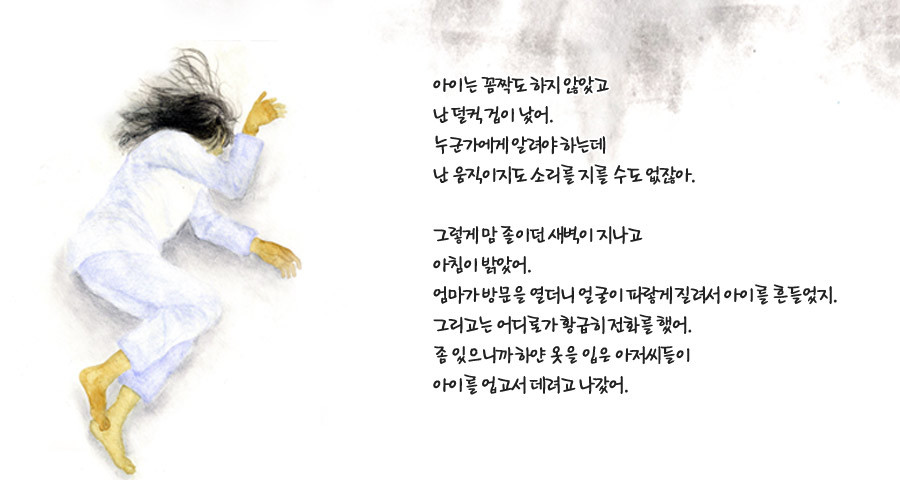 아이는 꼼짝도 하지 않았고
난 덜컥 겁이 났어.
누군가에게 알려야 하는데
난 움직이지도 소리를 지를 수도 없잖아.
그렇게 맘 졸이던 새벽이 지나고
아침이 밝았어.
엄마가 방문을 열더니 얼굴이 파랗게 질려서 아이를 흔들었지.
그리고는 어디론가 황급히 전화를 했어.
좀 있으니까 하얀 옷을 입은 아저씨들이
아이를 업고서 데려고 나갔어.